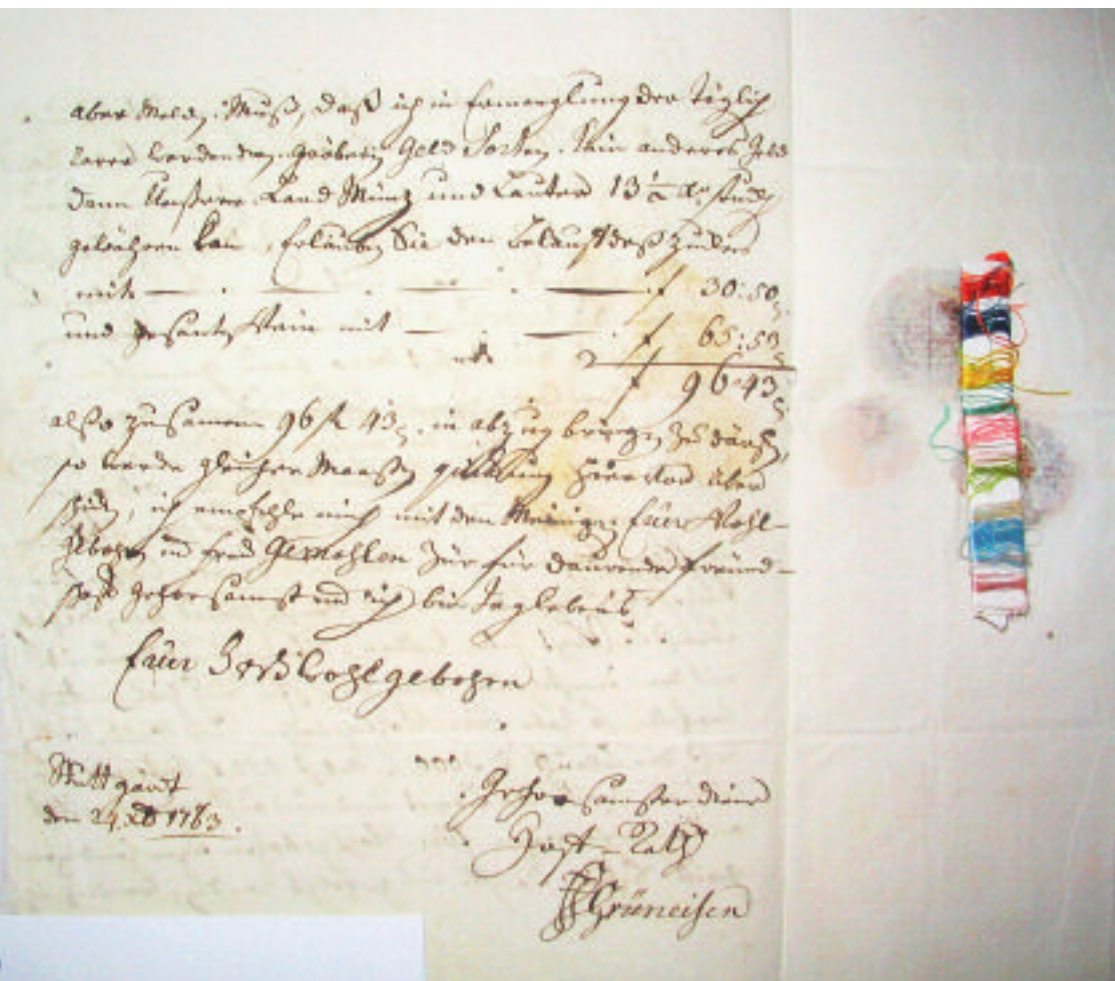 aber Meld. Muß, daß ich in Ermanglung der täglich
rarer werdenden gröbern Geld Sorten, kein anderes Geld
denn Unßere Land Müntz und Lauter
gewähren kan, Erlauben Sie den
mit — f 30:50
und mit — f 65:53
f 96:43
also zusamen 96 f 43 in abzug bringen zu dörfen,
so werde gleicher Maaßen hiervon über
, ich empfehle mich mit den Meinigen Euer Wohl-
gebohrn und Frau Gemahlen zur für daurender Freund-
schaft gehorsamst und ich bin Zeglebens
Euer Hochwohlgebohrn
Stuttgardt
den 1783.
gehorsamster diener
Rath
Grüneisen